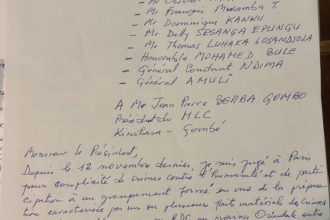 - Mr Olivier
- Mr François Mwamba T.
- Mr Dominique KANKU
- Mr Delly SESANGA EPUNGU
- Mr Thomas LUHAKA LOSENDJOLA
- Honorable MOHAMED BULE
- Général Constant NDIMA
- Général AMULI
A Mr Jean Pierre BEMBA GOMBO
Président du MLC
Kinshasa - Gombé
Monsieur le Président,
Depuis le 12 novembre dernier, je suis jugé à Paris
pour complicité de crimes contre l'humanité et de parti-
cipation à un groupement formé en vue de la prépara-
tion caractérisée par un ou plusieurs faits matériels de crimes
en RDC en province Orientale entre